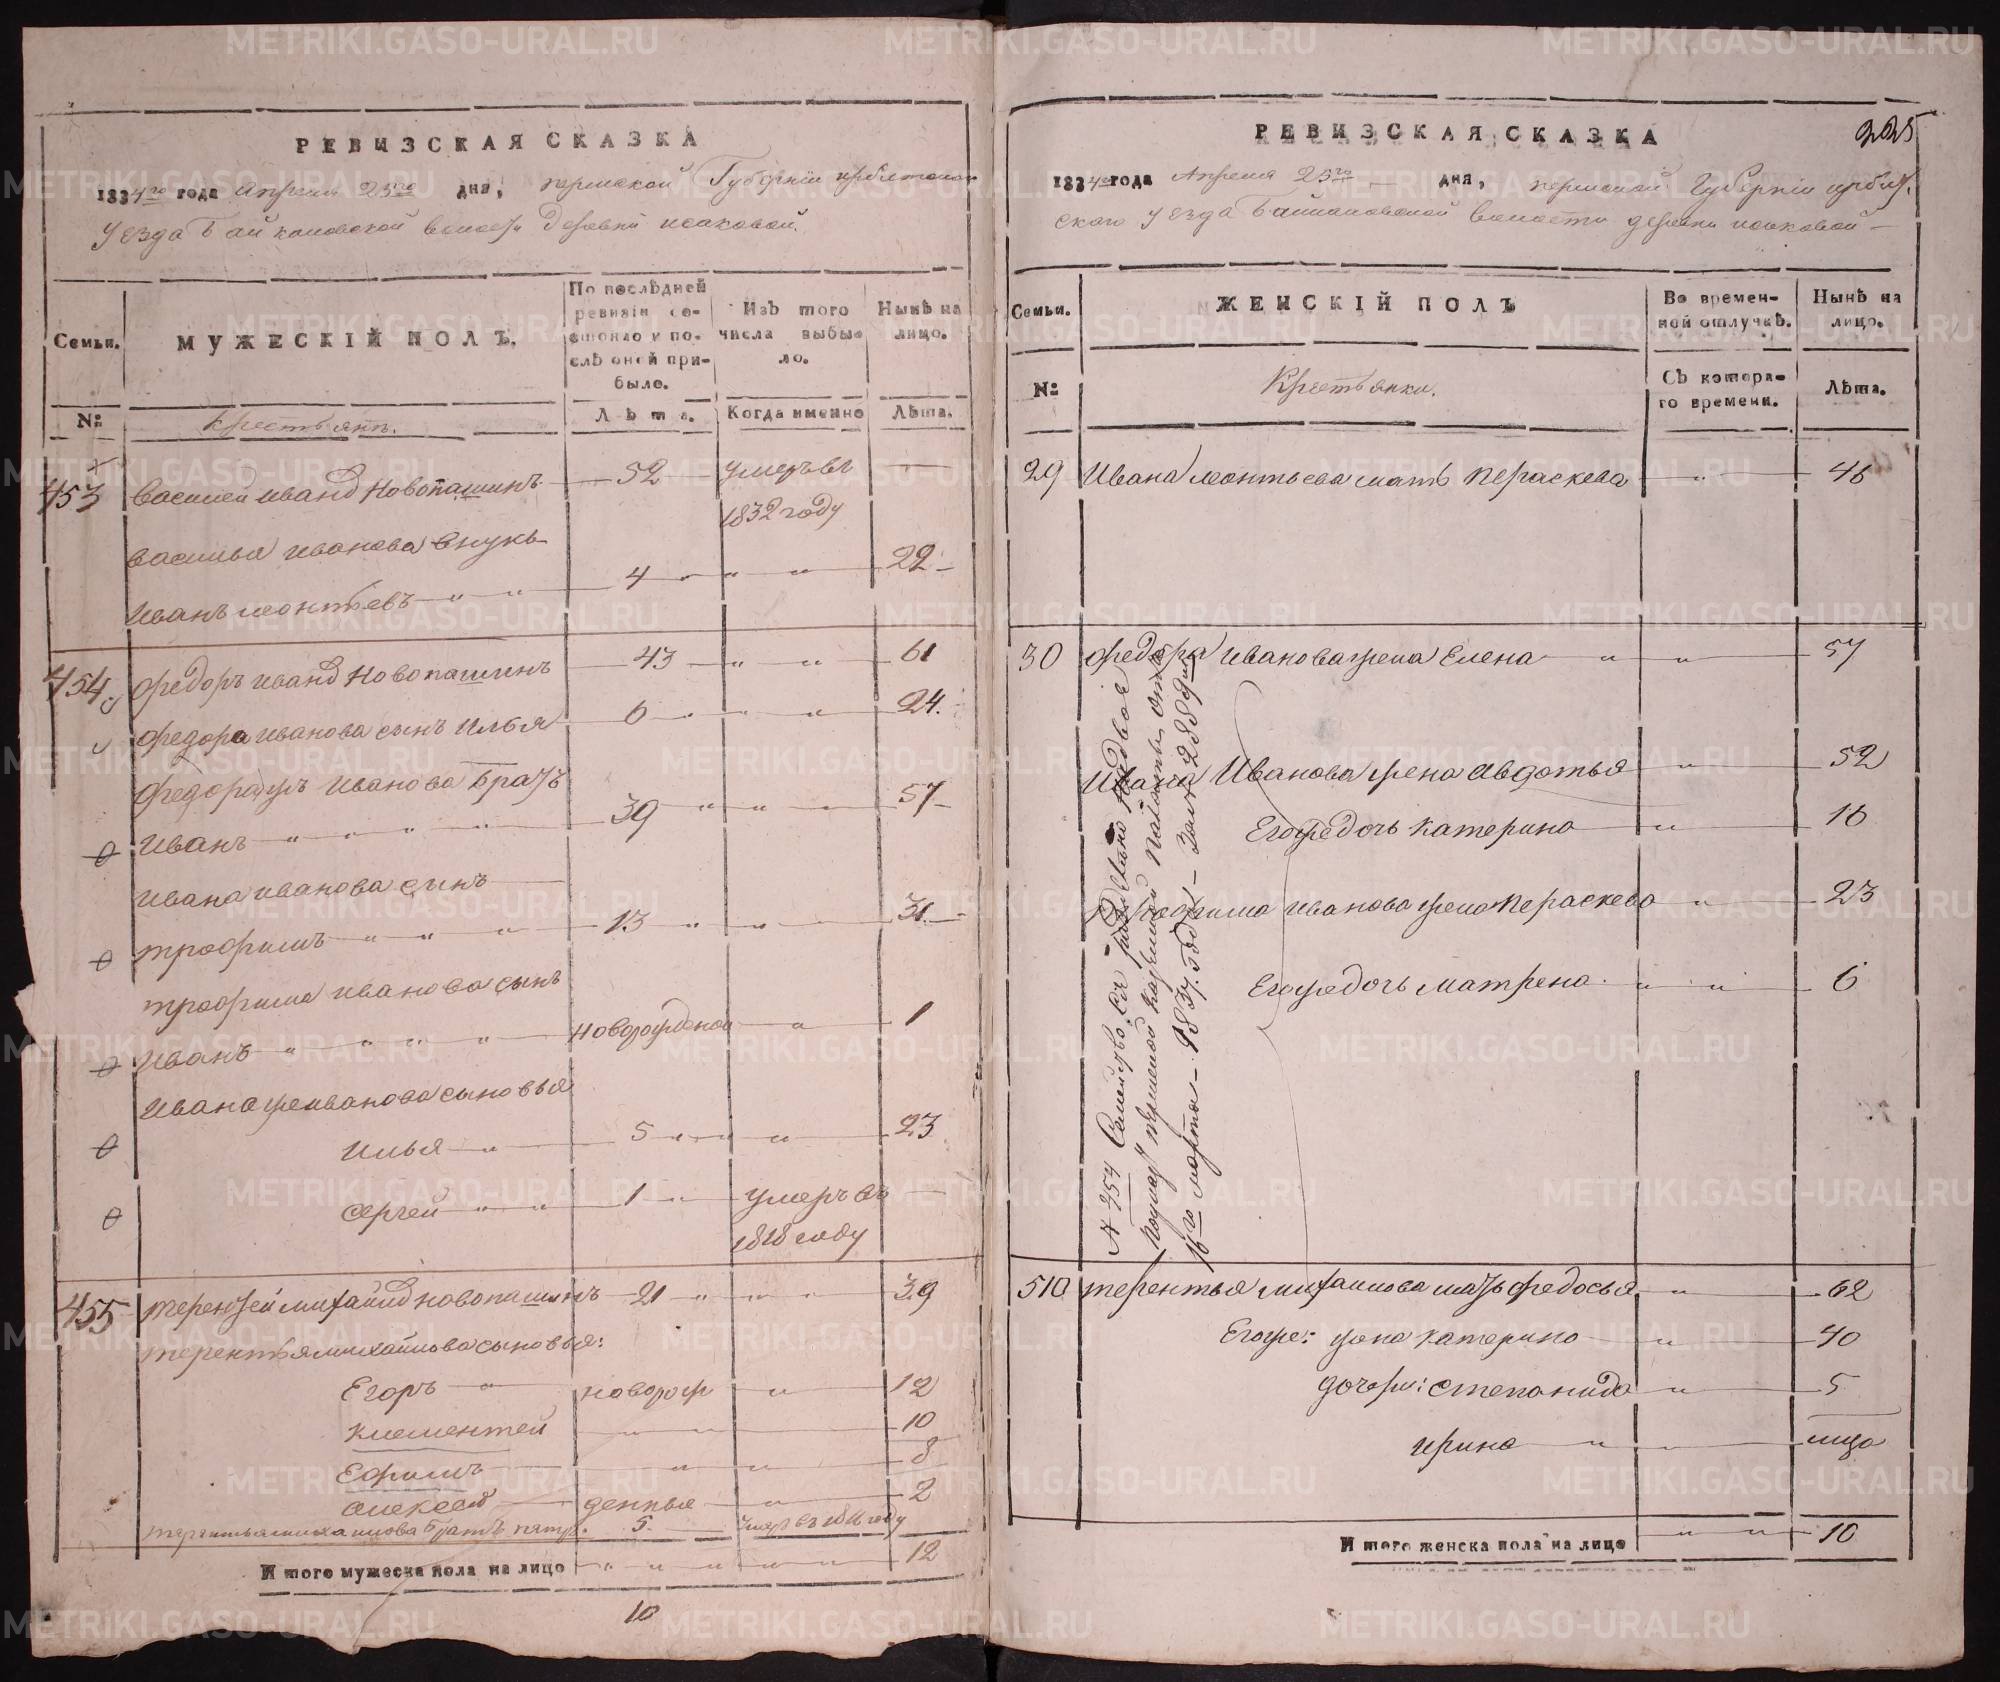 РЕВИЗСКАЯ СКАЗКА
1834го года Апреля 25го дня, пермской Губернiи ирбитскаго
Уезда Байкаловской волости Деревни исаковой.
Семьи.
МУЖЕСКIЙ ПОЛЪ.
По послѣдней ревизiи состояло и послѣ оной прибыло.
Изъ того числа выбыло.
Нынѣ на лицо.
№
Крестьянъ.
Лѣта.
Когда именно
Лѣта.
453 Василей иванов Новопашинъ 52 умеръ въ
1832 году
василья иванова внукъ
иванъ леонтьевъ " " 4 " " " 22
454 Федоръ иванов Новопашинъ 43 " " 61
Федора иванова сынъ илья 6 " " " 24.
Федора иванова Братъ
иванъ " " " " 39 " " " 57
ивана иванова сынъ
трофимъ " " " 13 " " " 31
трофима иванова сынъ
иванъ " " " " новорожденой " 1
ивана же иванова сыновья
илья " 5 " " " 23
сергей " " 1 " умеръ въ
1818 году
455 терентей михайлов новопашинъ 21 " " " 39
терентья михайлова сыновья:
Егоръ " новорож " 12
клементей " " 10
Ефимъ " " 8
алексей " 2
терентья михайлова Братъ петръ. 5. умеръ въ 1816 году
И того мужеска пола на лицо " " " " " 12
10
РЕВИЗСКАЯ СКАЗКА
225
1834го года Апреля 25го дня, пермской Губернiи ирбит.
ского Уезда Байкаловской волости деревни исаковой
Семьи.
ЖЕНСКIЙ ПОЛЪ
Во временной отлучкѣ.
Нынѣ на лицо.
№
Крестьянки.
Съ котораго времени.
Лѣта.
29 Ивана леонтьева мать пераскева " 46
30 Федора иванова жена Елена " " 57
Ивана Иванова жена авдотья " 52
Егожедочь катерина " 16
трофима иванова жена пераскева " 23
Егожедочь матрена " " 6
№ 454
16го марта 1837. Года
510 терентья михайлова мать федосья " 62
Егоже: жена катерина " 40
дочери: степанида " 5
ирина " "
И того женска пола на лицо " " 10
METRIKI.GASO-URAL.RU